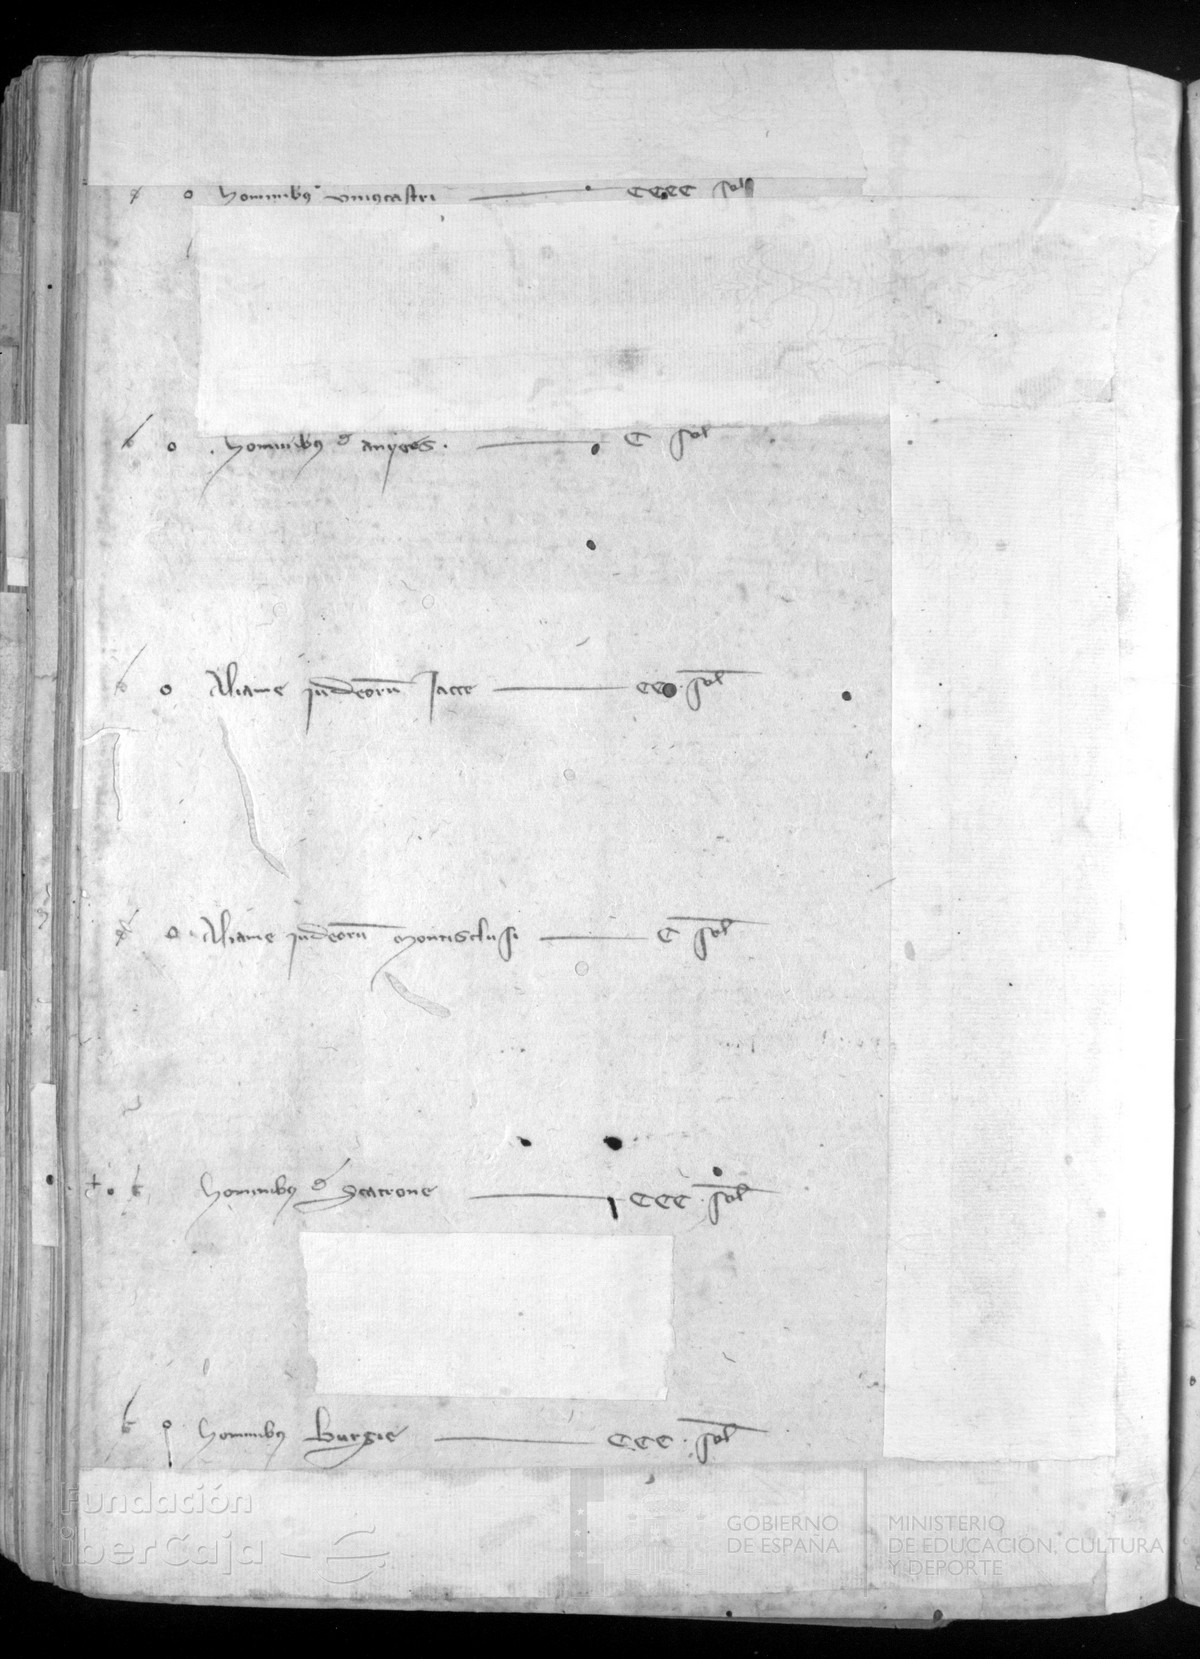 o hominibus uniuscastri — CCCC sol
o hominibus de anyses — C sol
o Aliame judeorum Jacce — CCC sol
o Aliame judeorum Montisclusi — C sol
hominibus de — CCC sol
hominibus Burgie — CCC sol
Fundación
iberCaja
GOBIERNO
DE ESPAÑA
MINISTERIO
DE EDUCACIÓN, CULTURA
Y DEPORTE